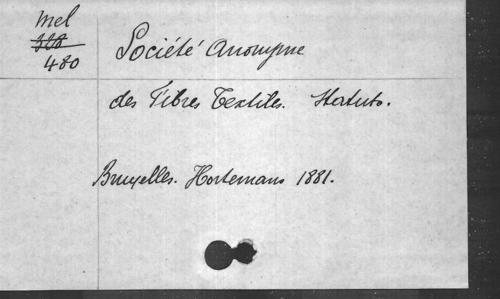 Mel
388
480
Société Anonyme
des Fibres Textiles. Statuts.
Bruxelles. Hortemans 1881.